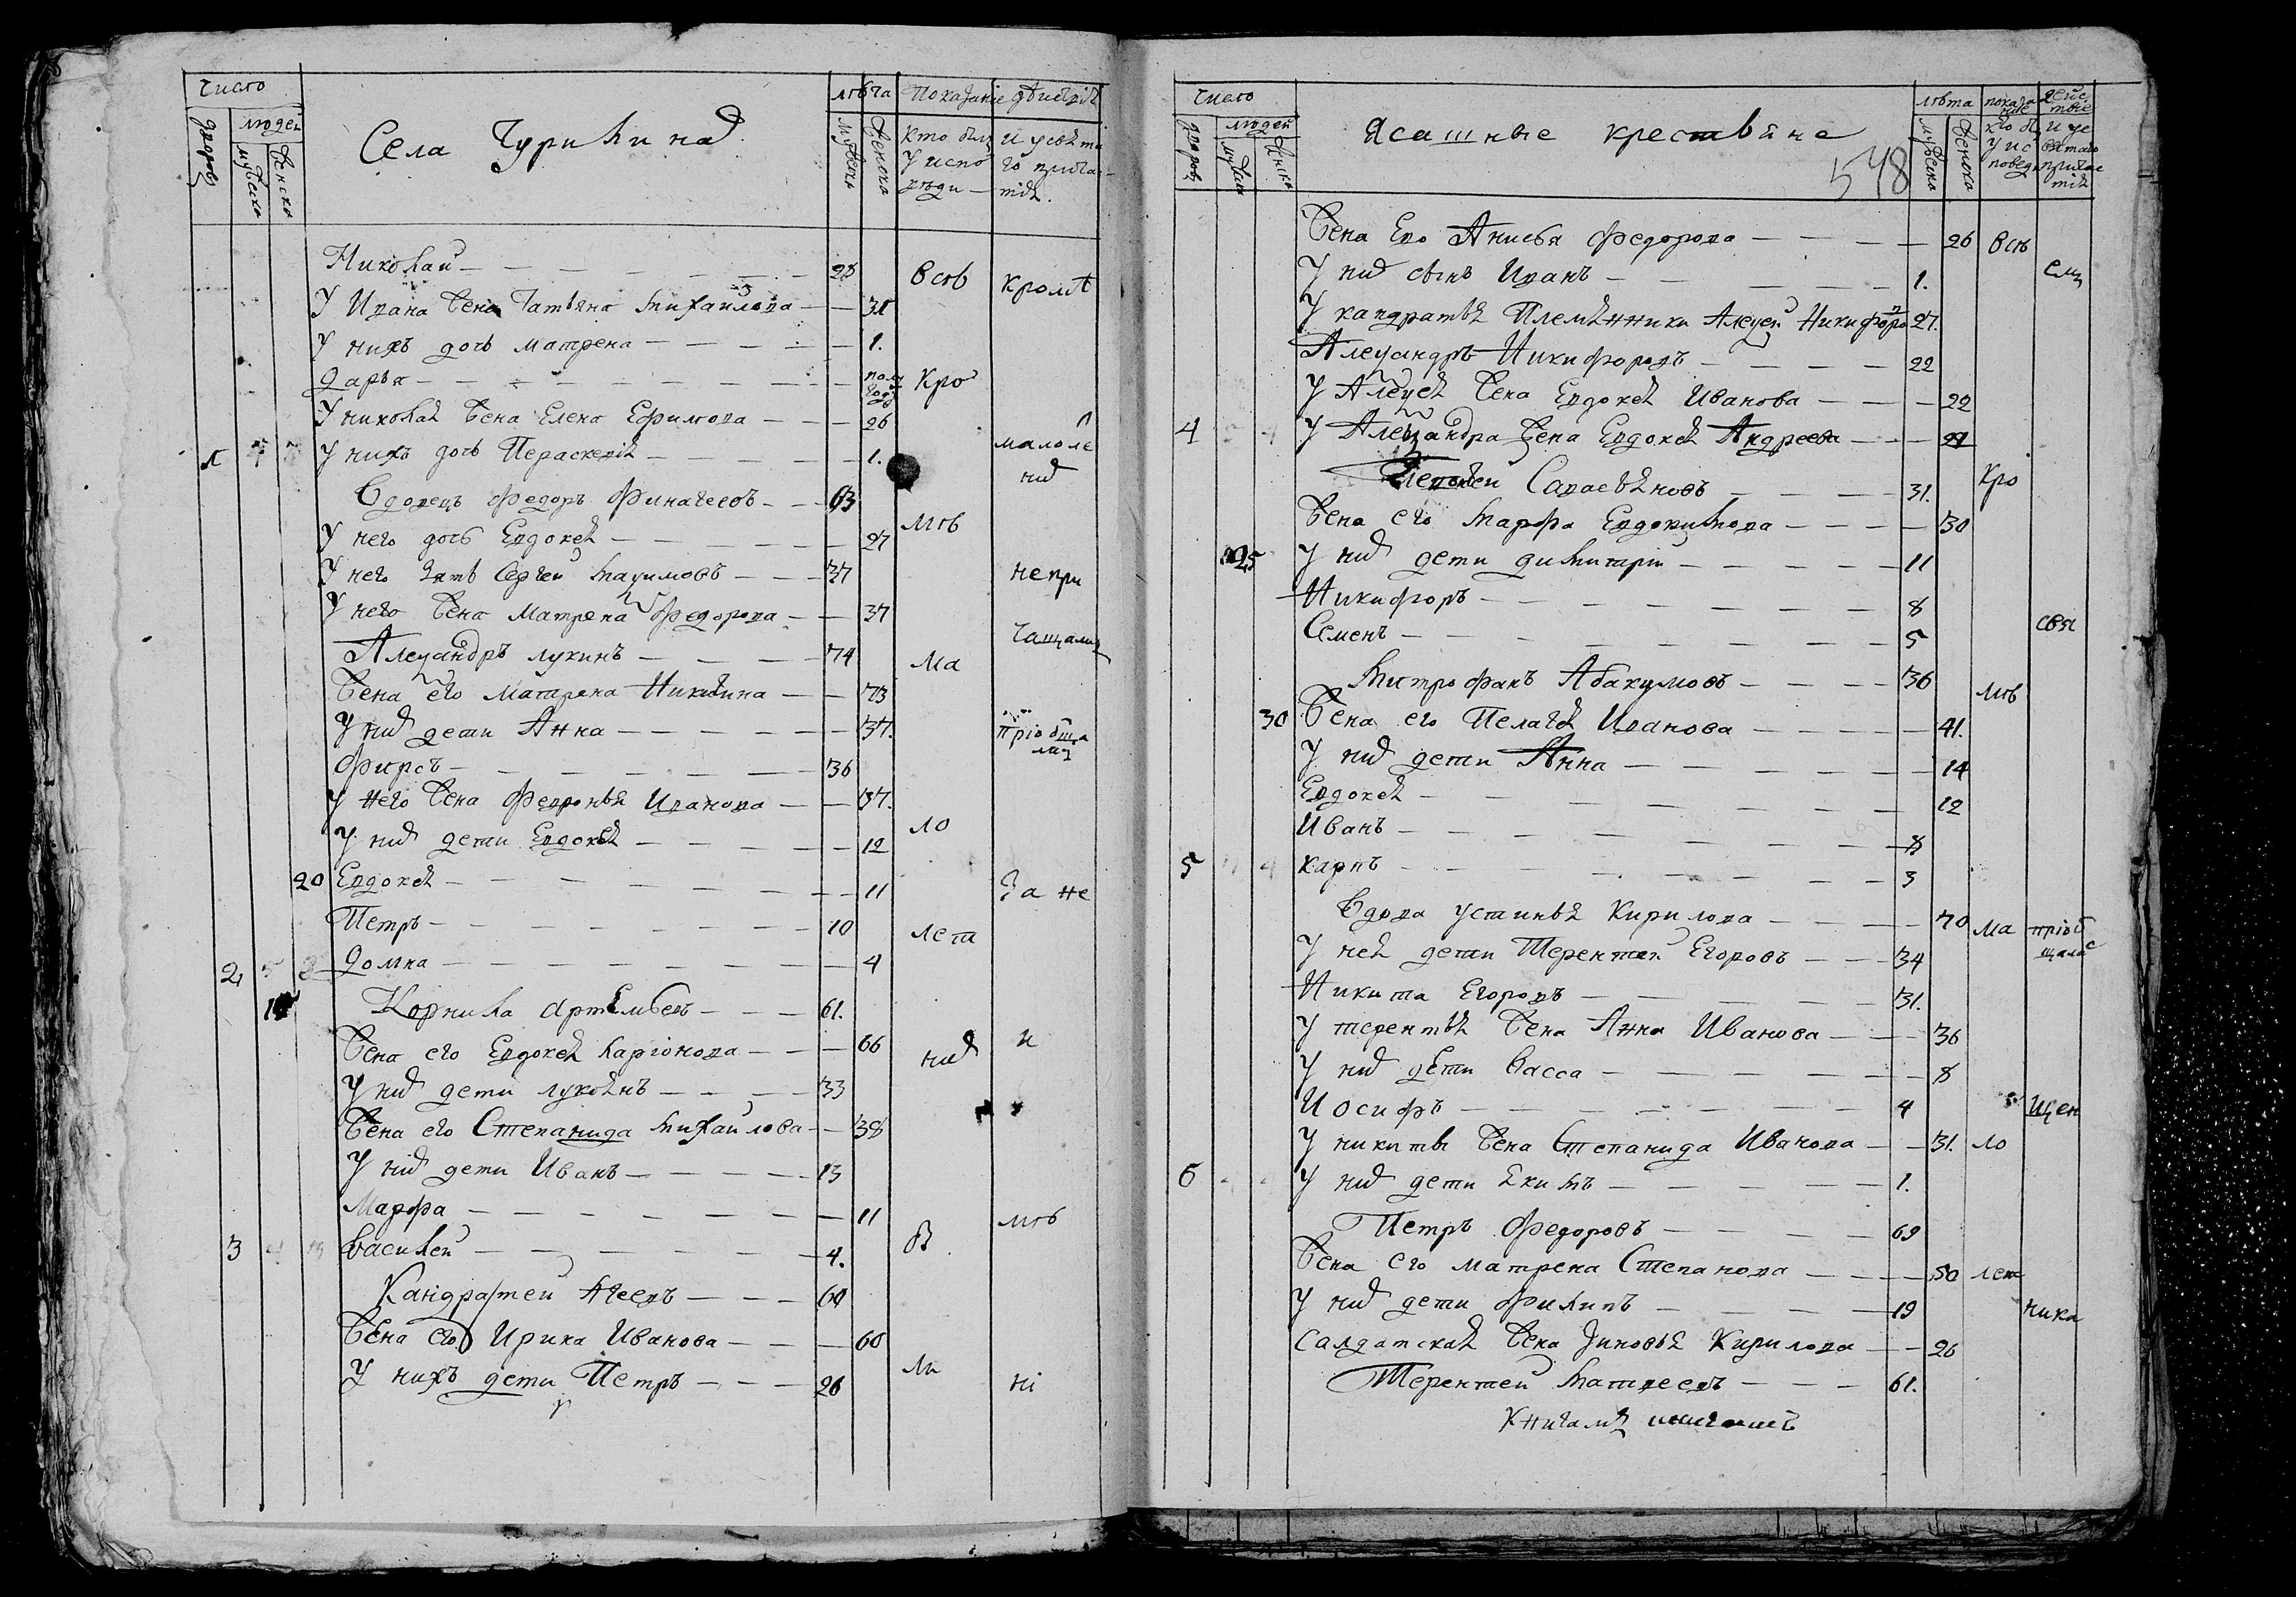 число
людей
дворовъ
мужеска
женска
Села Чурикина
лѣта
мужеска
женска
Показаніе действія
кто былъ у исповеди
и у святаго причастія.
Николай — 28
всѣ
кромѣ
У Ивана жена Татьяна Михайлова — 31
У нихъ дочь Матрена — 1.
Дарья — полу года
Кро
У Николая жена Елена Ефимова — 26
У нихъ дочь Параскевія — 1.
малоле
нихъ
Вдовецъ Федоръ Финагеевъ — 63
У него дочь Евдокея — 27
мѣ
У него зять Сергей Максимовъ — 37
непри
У него жена Матрена Федорова — 37
чащались
Александръ Лукинъ — 74
ма
Жена его Матрена Никитина — 73
У них дети Анна — 37.
пріобща
лись
Фирсъ — 36
У него жена Февронья Иванова — 37.
ло
У них дети Евдокея — 12
20 Евдокея — 11
за не
Петръ — 10
лет
2 Домна — 4
Корнила Артемьевъ — 61.
Жена его Евдокея Ларіонова — 66
них
и
У них дети Лукоянъ — 33
Жена его Степанида Михайлова — 38
У них дети Иванъ — 13
Марфа — 11
мѣ
3 Василей — 4.
Кандратей Агеевъ — 60
Жена его Ирина Иванова — 60
У нихъ дети Петръ — 26
ли
ні
число
людей
дворовъ
мужеска
женска
Ясашные крестьяне
548
лѣта
мужеска
женска
показание
действие
кто былъ у исповеди
и у святаго причастія
Жена Его Анисья Федорова — 26
всѣ
У них сынъ Иванъ — 1.
У Кандратья Племянники Алексей Никифоровъ 27.
Александръ Никифоровъ — 22
У Алексея жена Евдокея Иванова — 22
4 У Александра жена Евдокея Андреева — 27
Савостьяновъ — 31.
Кро
Жена его Марфа Евдокимова — 30
25 У них дети Димитарій — 11
Никифоръ — 8
Семенъ — 5
свя
Митрофанъ Абакумовъ — 36
мѣ
30 Жена его Пелагея Иванова — 41.
У них дети Анна — 14
Евдокея — 12
Иванъ — 8
5 4 Карпъ — 3
Вдова Устинья Кирилова — 70
ма
пріоб
щалас
У нея дети Терентей Егоровъ — 34
Никита Егоровъ — 31.
У Терентья жена Анна Иванова — 36
У них дети Васса — 8
Иосифъ — 4
щен
У Никиты жена Степанида Иванова — 31.
ло
6 У них дети Екимъ — 1.
Петръ Федоровъ — 69
Жена его Матрена Степанова — 50
лет
У них дети Филипъ — 19
ника
Салдатская жена Зиновья Кирилова — 26
Терентей Матвеевъ — 61.